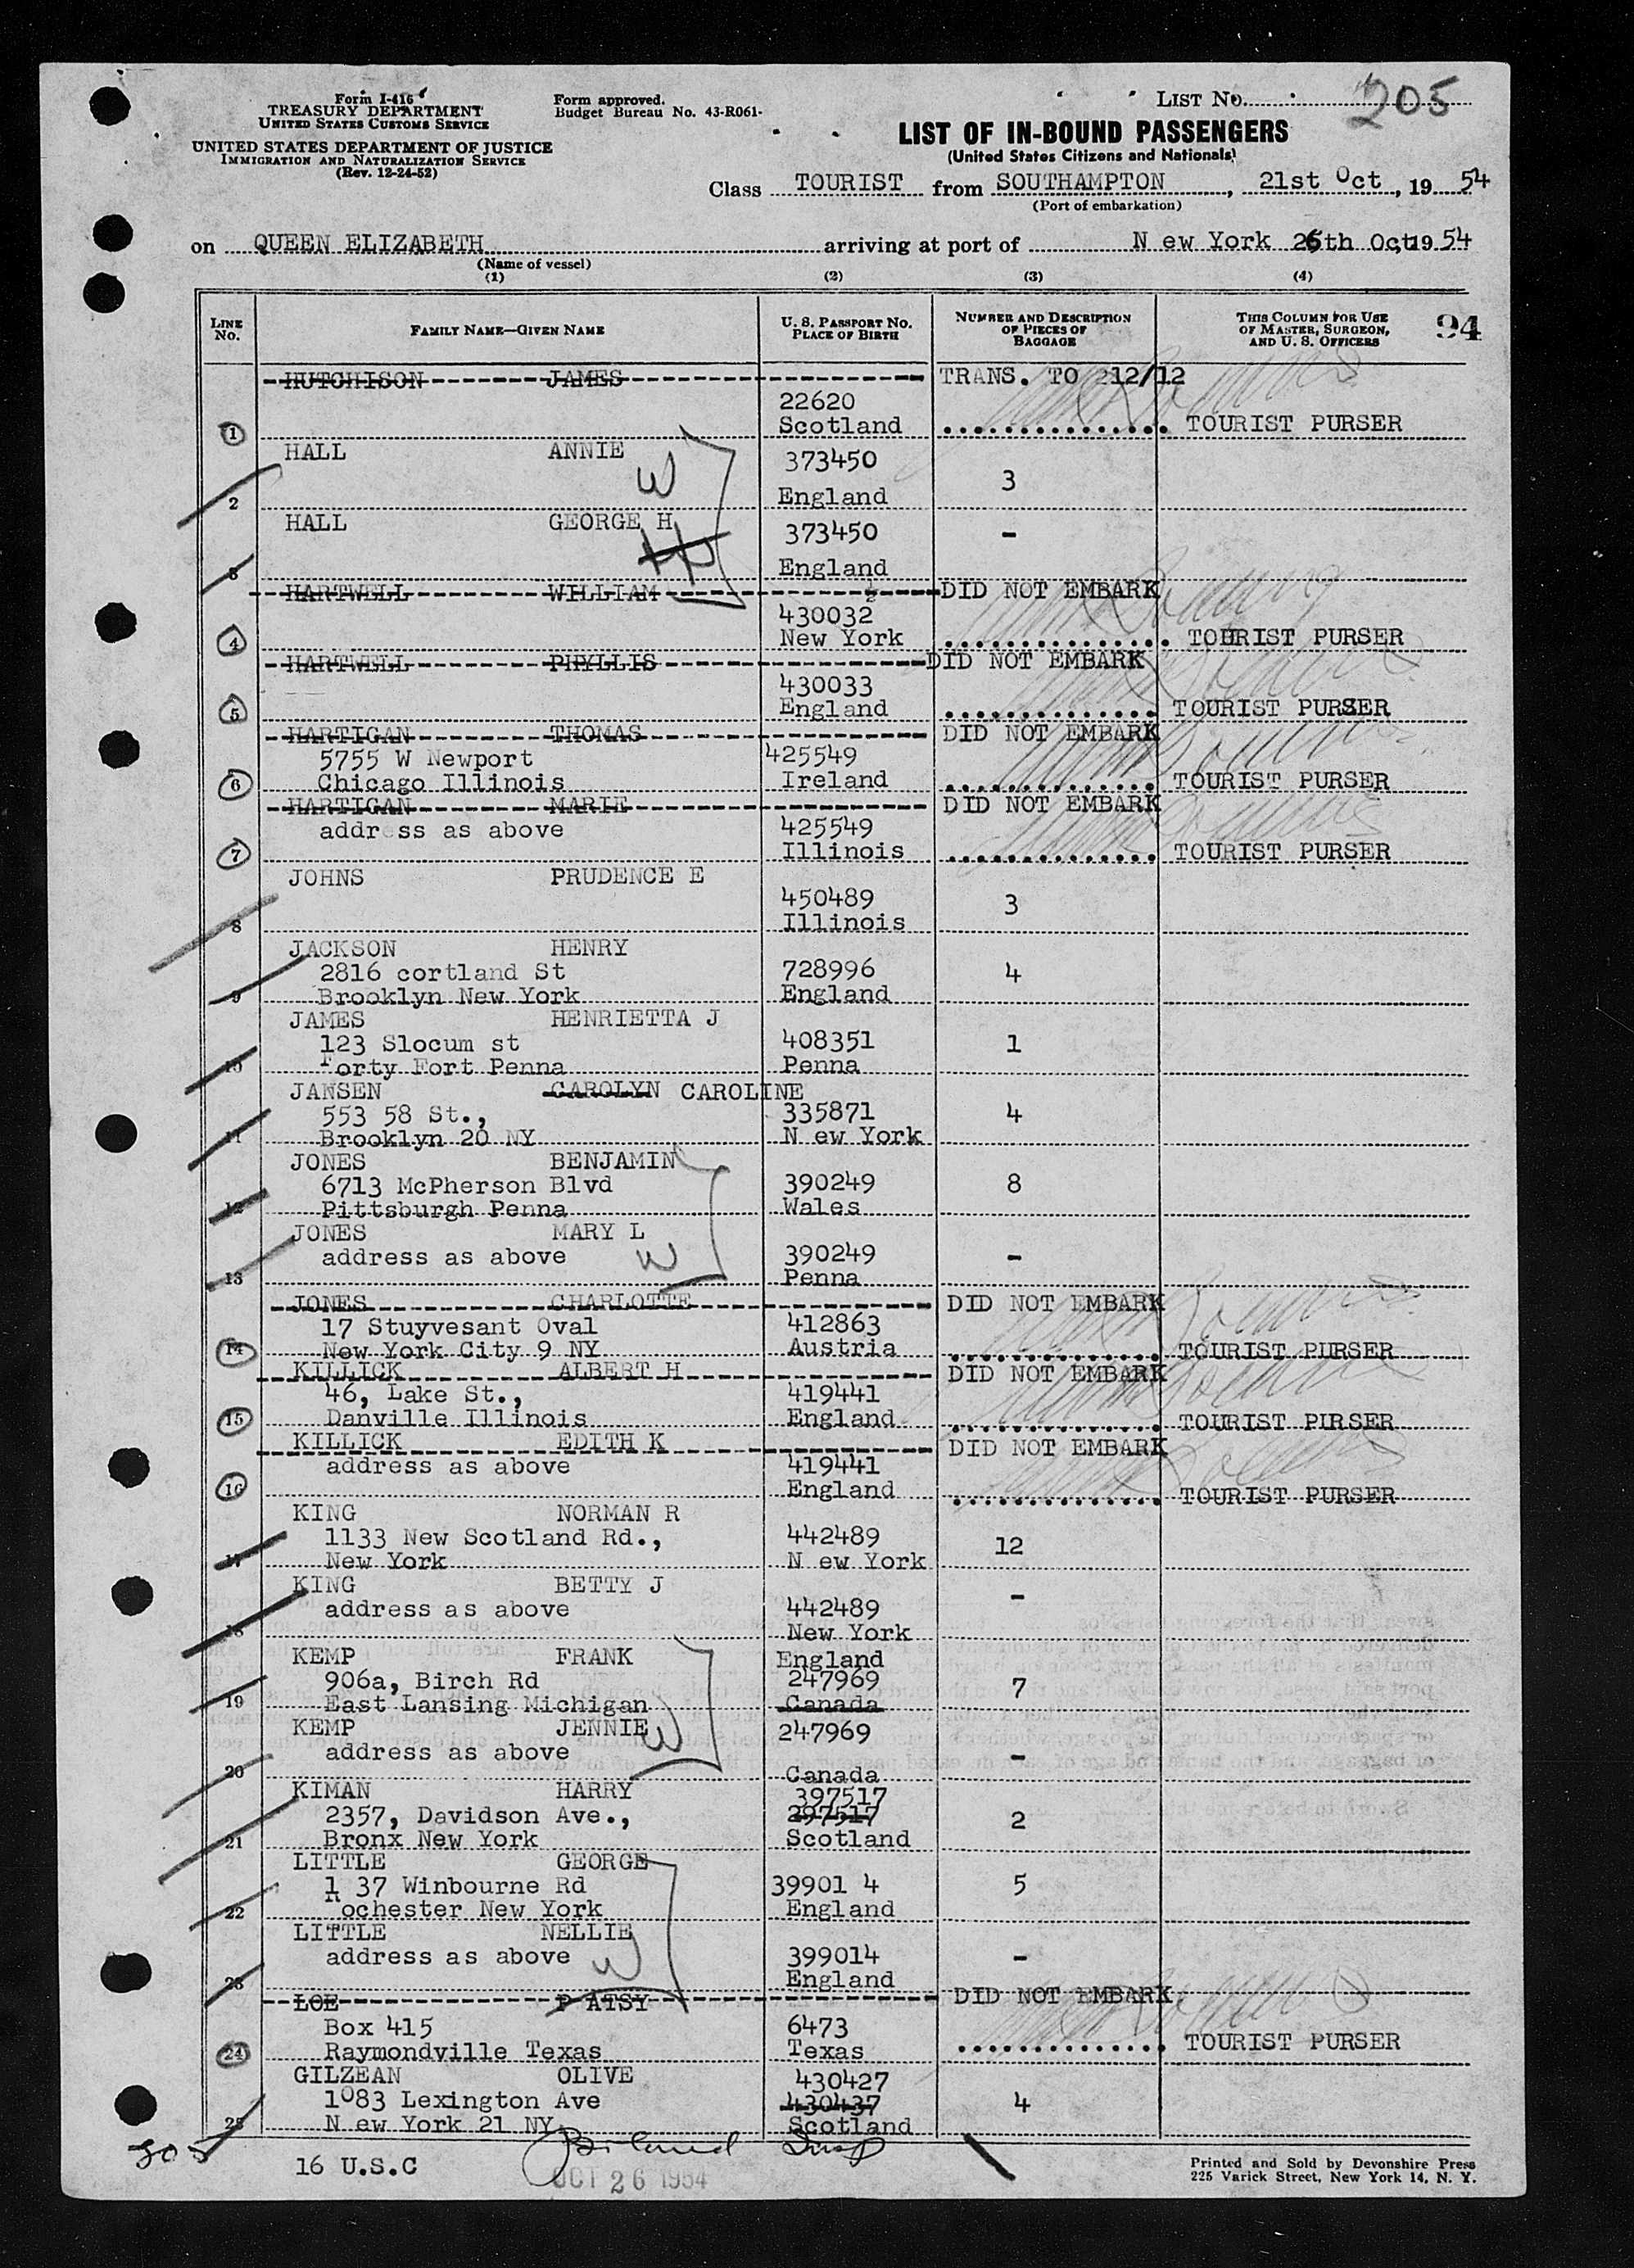 Form I-416
TREASURY DEPARTMENT
UNITED STATES CUSTOMS SERVICE
UNITED STATES DEPARTMENT OF JUSTICE
IMMIGRATION AND NATURALIZATION SERVICE
(Rev. 12-24-52)
Form approved.
Budget Bureau No. 43-R061-
LIST NO. 205
LIST OF IN-BOUND PASSENGERS
(United States Citizens and Nationals)
Class TOURIST from SOUTHAMPTON, 21st Oct, 19 54
(Port of embarkation)
on QUEEN ELIZABETH arriving at port of New York 26th Oct, 19 54
(Name of vessel)
(1) (2) (3) (4)
LINE NO. FAMILY NAME—GIVEN NAME U. S. PASSPORT NO. PLACE OF BIRTH NUMBER AND DESCRIPTION OF PIECES OF BAGGAGE THIS COLUMN FOR USE OF MASTER, SURGEON, AND U. S. OFFICERS 94
HUTCHISON JAMES TRANS. TO 212/12
22620
1 Scotland TOURIST PURSER
HALL ANNIE 373450
W 3
2 England
HALL GEORGE H 373450 -
3 England
HARTWELL WILLIAM DID NOT EMBARK
430032
4 New York TOURIST PURSER
HARTWELL PHYLLIS DID NOT EMBARK
430033
5 England TOURIST PURSER
HARTIGAN THOMAS DID NOT EMBARK
5755 W Newport 425549
6 Chicago Illinois Ireland TOURIST PURSER
HARTIGAN MARIE DID NOT EMBARK
address as above 425549
7 Illinois TOURIST PURSER
JOHNS PRUDENCE E
450489 3
8 Illinois
JACKSON HENRY
2816 cortland St 728996 4
9 Brooklyn New York England
JAMES HENRIETTA J
123 Slocum st 408351 1
10 Forty Fort Penna Penna
JANSEN CAROLYN CAROLINE
553 58 St., 335871 4
11 Brooklyn 20 NY N ew York
JONES BENJAMIN
6713 McPherson Blvd 390249 8
12 Pittsburgh Penna Wales
JONES MARY L
address as above W 390249 -
13 Penna
JONES CHARLOTTE DID NOT EMBARK
17 Stuyvesant Oval 412863
14 New York City 9 NY Austria TOURIST PURSER
KILLICK ALBERT H DID NOT EMBARK
46, Lake St., 419441
15 Danville Illinois England TOURIST PIRSER
KILLICK EDITH K DID NOT EMBARK
address as above 419441
16 England TOURIST PURSER
KING NORMAN R
1133 New Scotland Rd., 442489 12
17 New York N ew York
KING BETTY J -
address as above 442489
18 New York
KEMP FRANK England
906a, Birch Rd 247969 7
19 East Lansing Michigan Canada
KEMP JENNIE W 247969
address as above -
20 Canada
KIMAN HARRY 397517
2357, Davidson Ave., 297517 2
21 Bronx New York Scotland
LITTLE GEORGE
1 37 Winbourne Rd 39901 4 5
22 Rochester New York England
LITTLE NELLIE
address as above W 399014 -
23 England
LOE P ATSY DID NOT EMBARK
Box 415 6473
24 Raymondville Texas Texas TOURIST PURSER
GILZEAN OLIVE 430427
1083 Lexington Ave 430437 4
25 N ew York 21 NY. Scotland
305
16 U.S.C
OCT 26 1954
Printed and Sold by Devonshire Press
225 Varick Street, New York 14, N. Y.